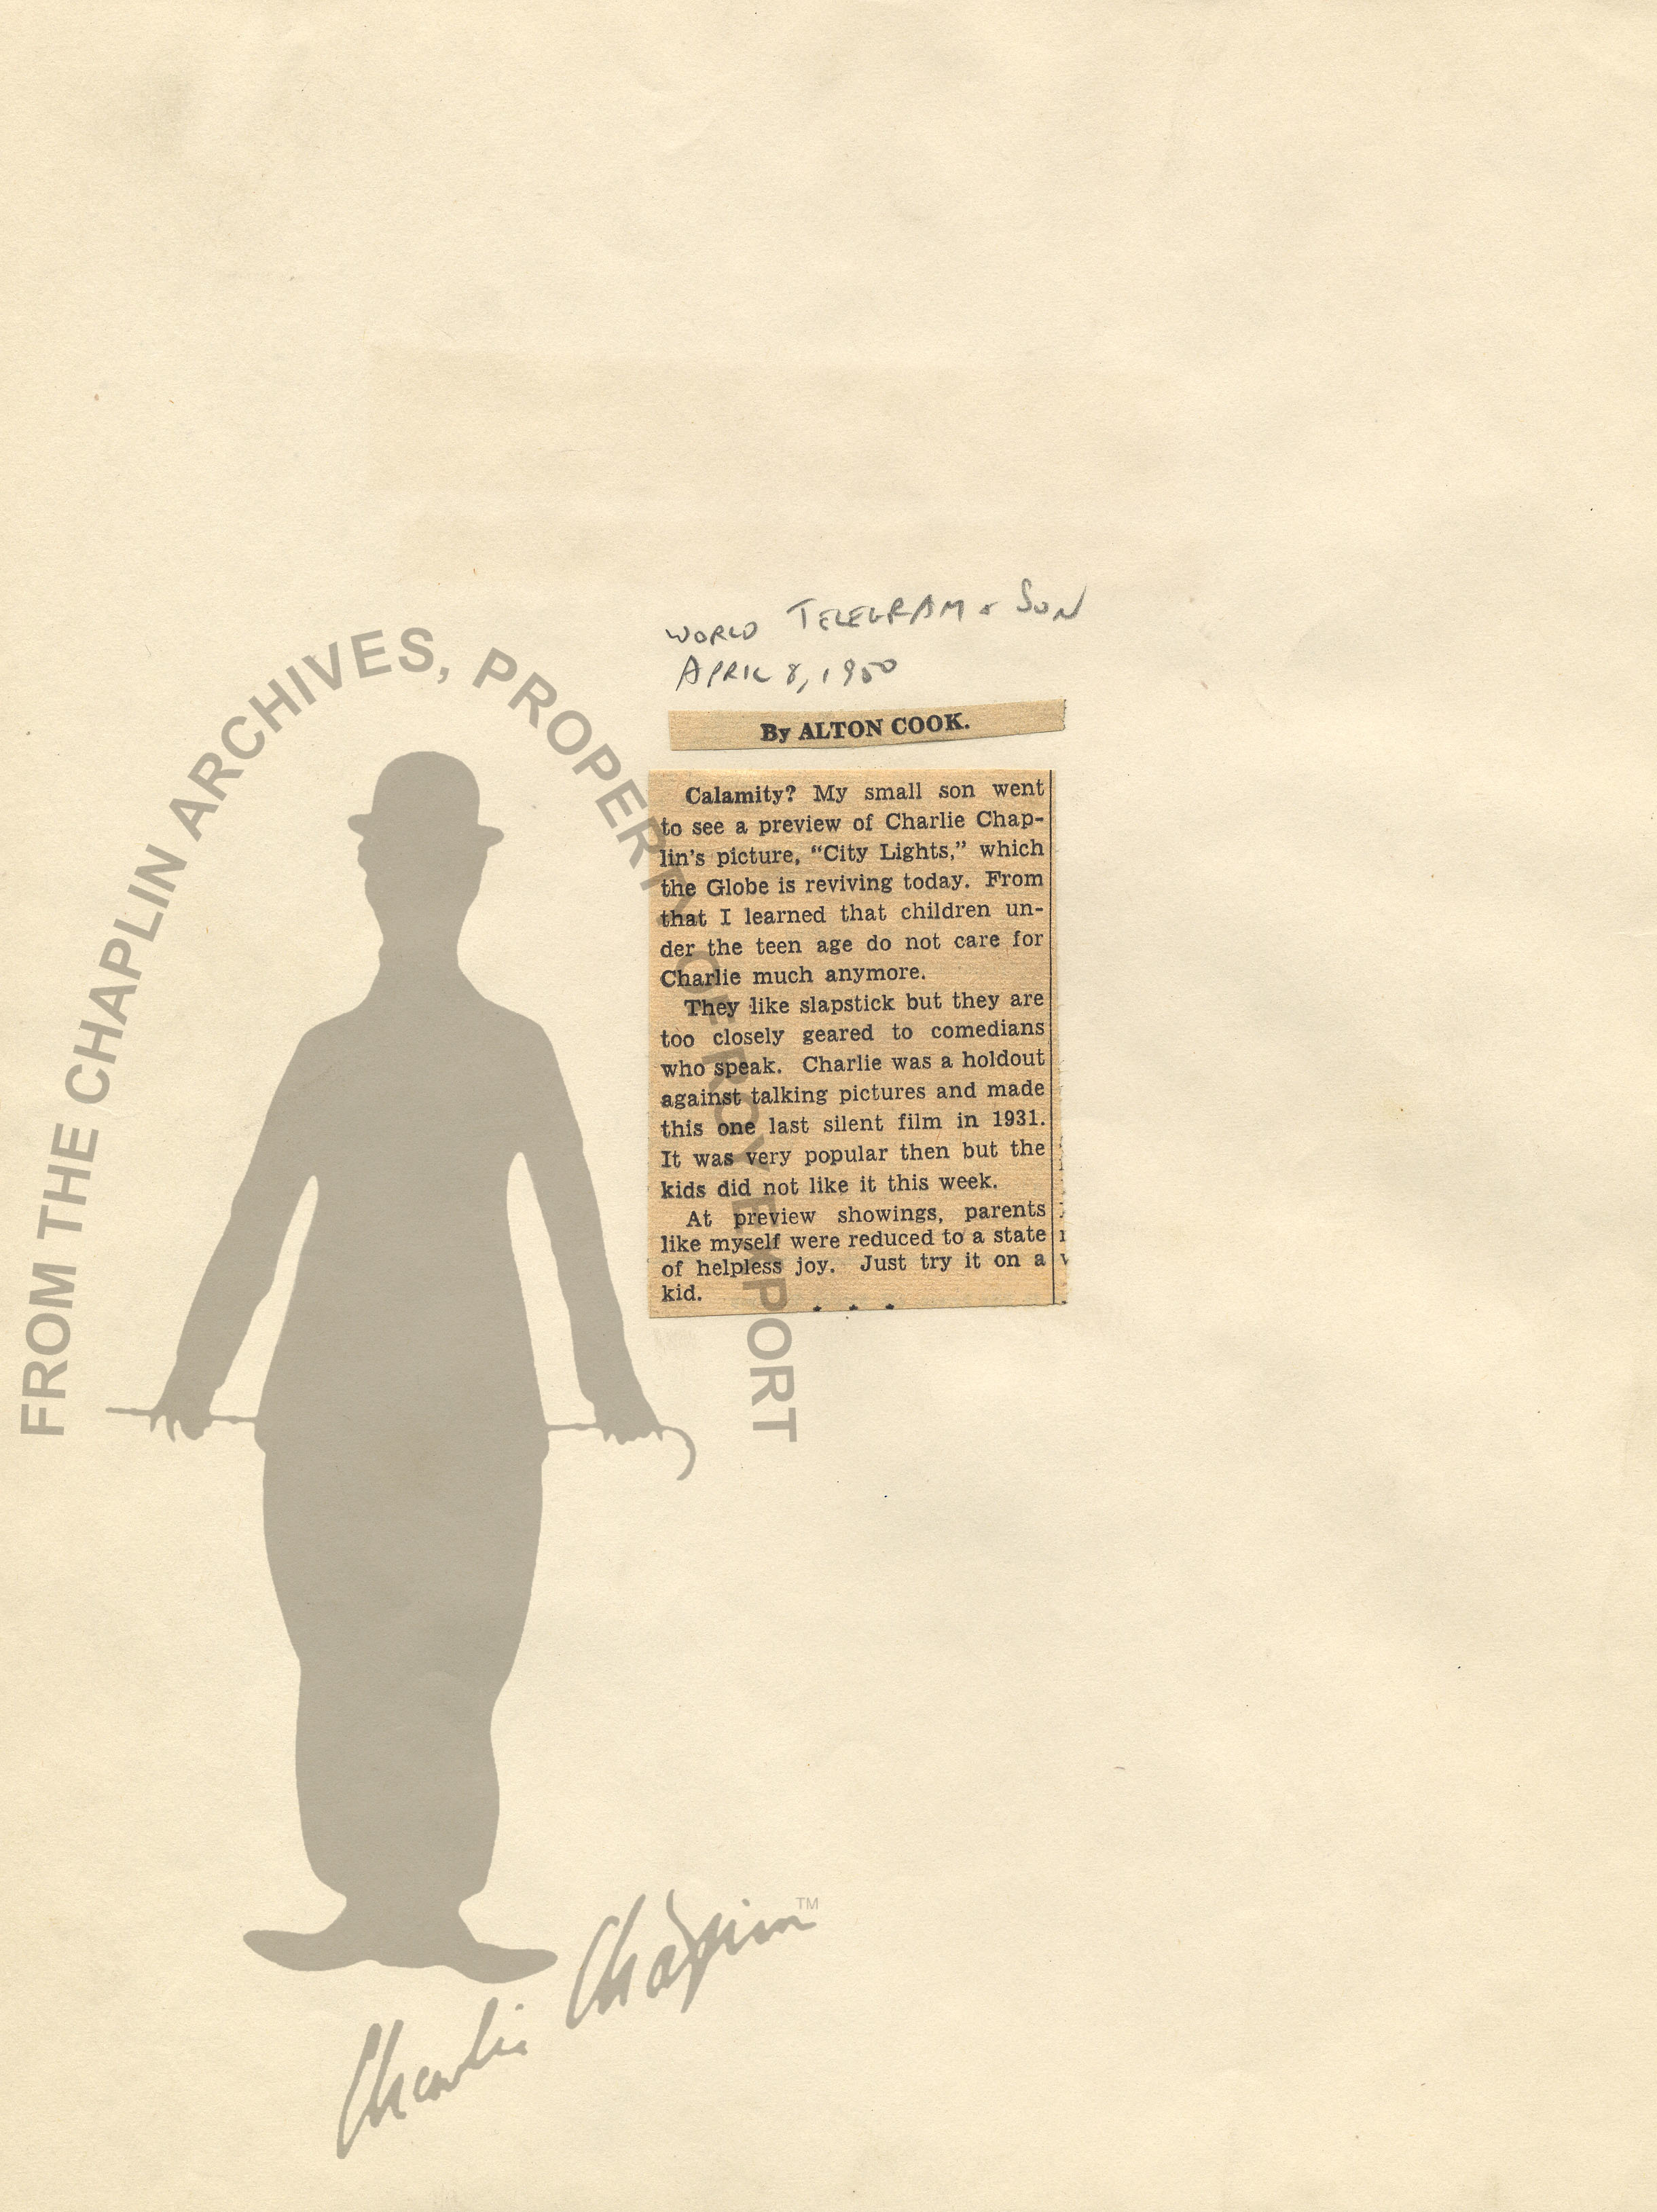 WORLD TELEGRAM & SUN
APRIL 8, 1950
By ALTON COOK.
Calamity? My small son went
to see a preview of Charlie Chap-
lin's picture, “City Lights,” which
the Globe is reviving today. From
that I learned that children un-
der the teen age do not care for
Charlie much anymore.
They like slapstick but they are
too closely geared to comedians
who speak. Charlie was a holdout
against talking pictures and made
this one last silent film in 1931.
It was very popular then but the
kids did not like it this week.
At preview showings, parents
like myself were reduced to a state
of helpless joy. Just try it on a
kid.
* * *
FROM THE CHAPLIN ARCHIVES, PROPERTY OF ROY EXPORT
Charlie Chaplin TM